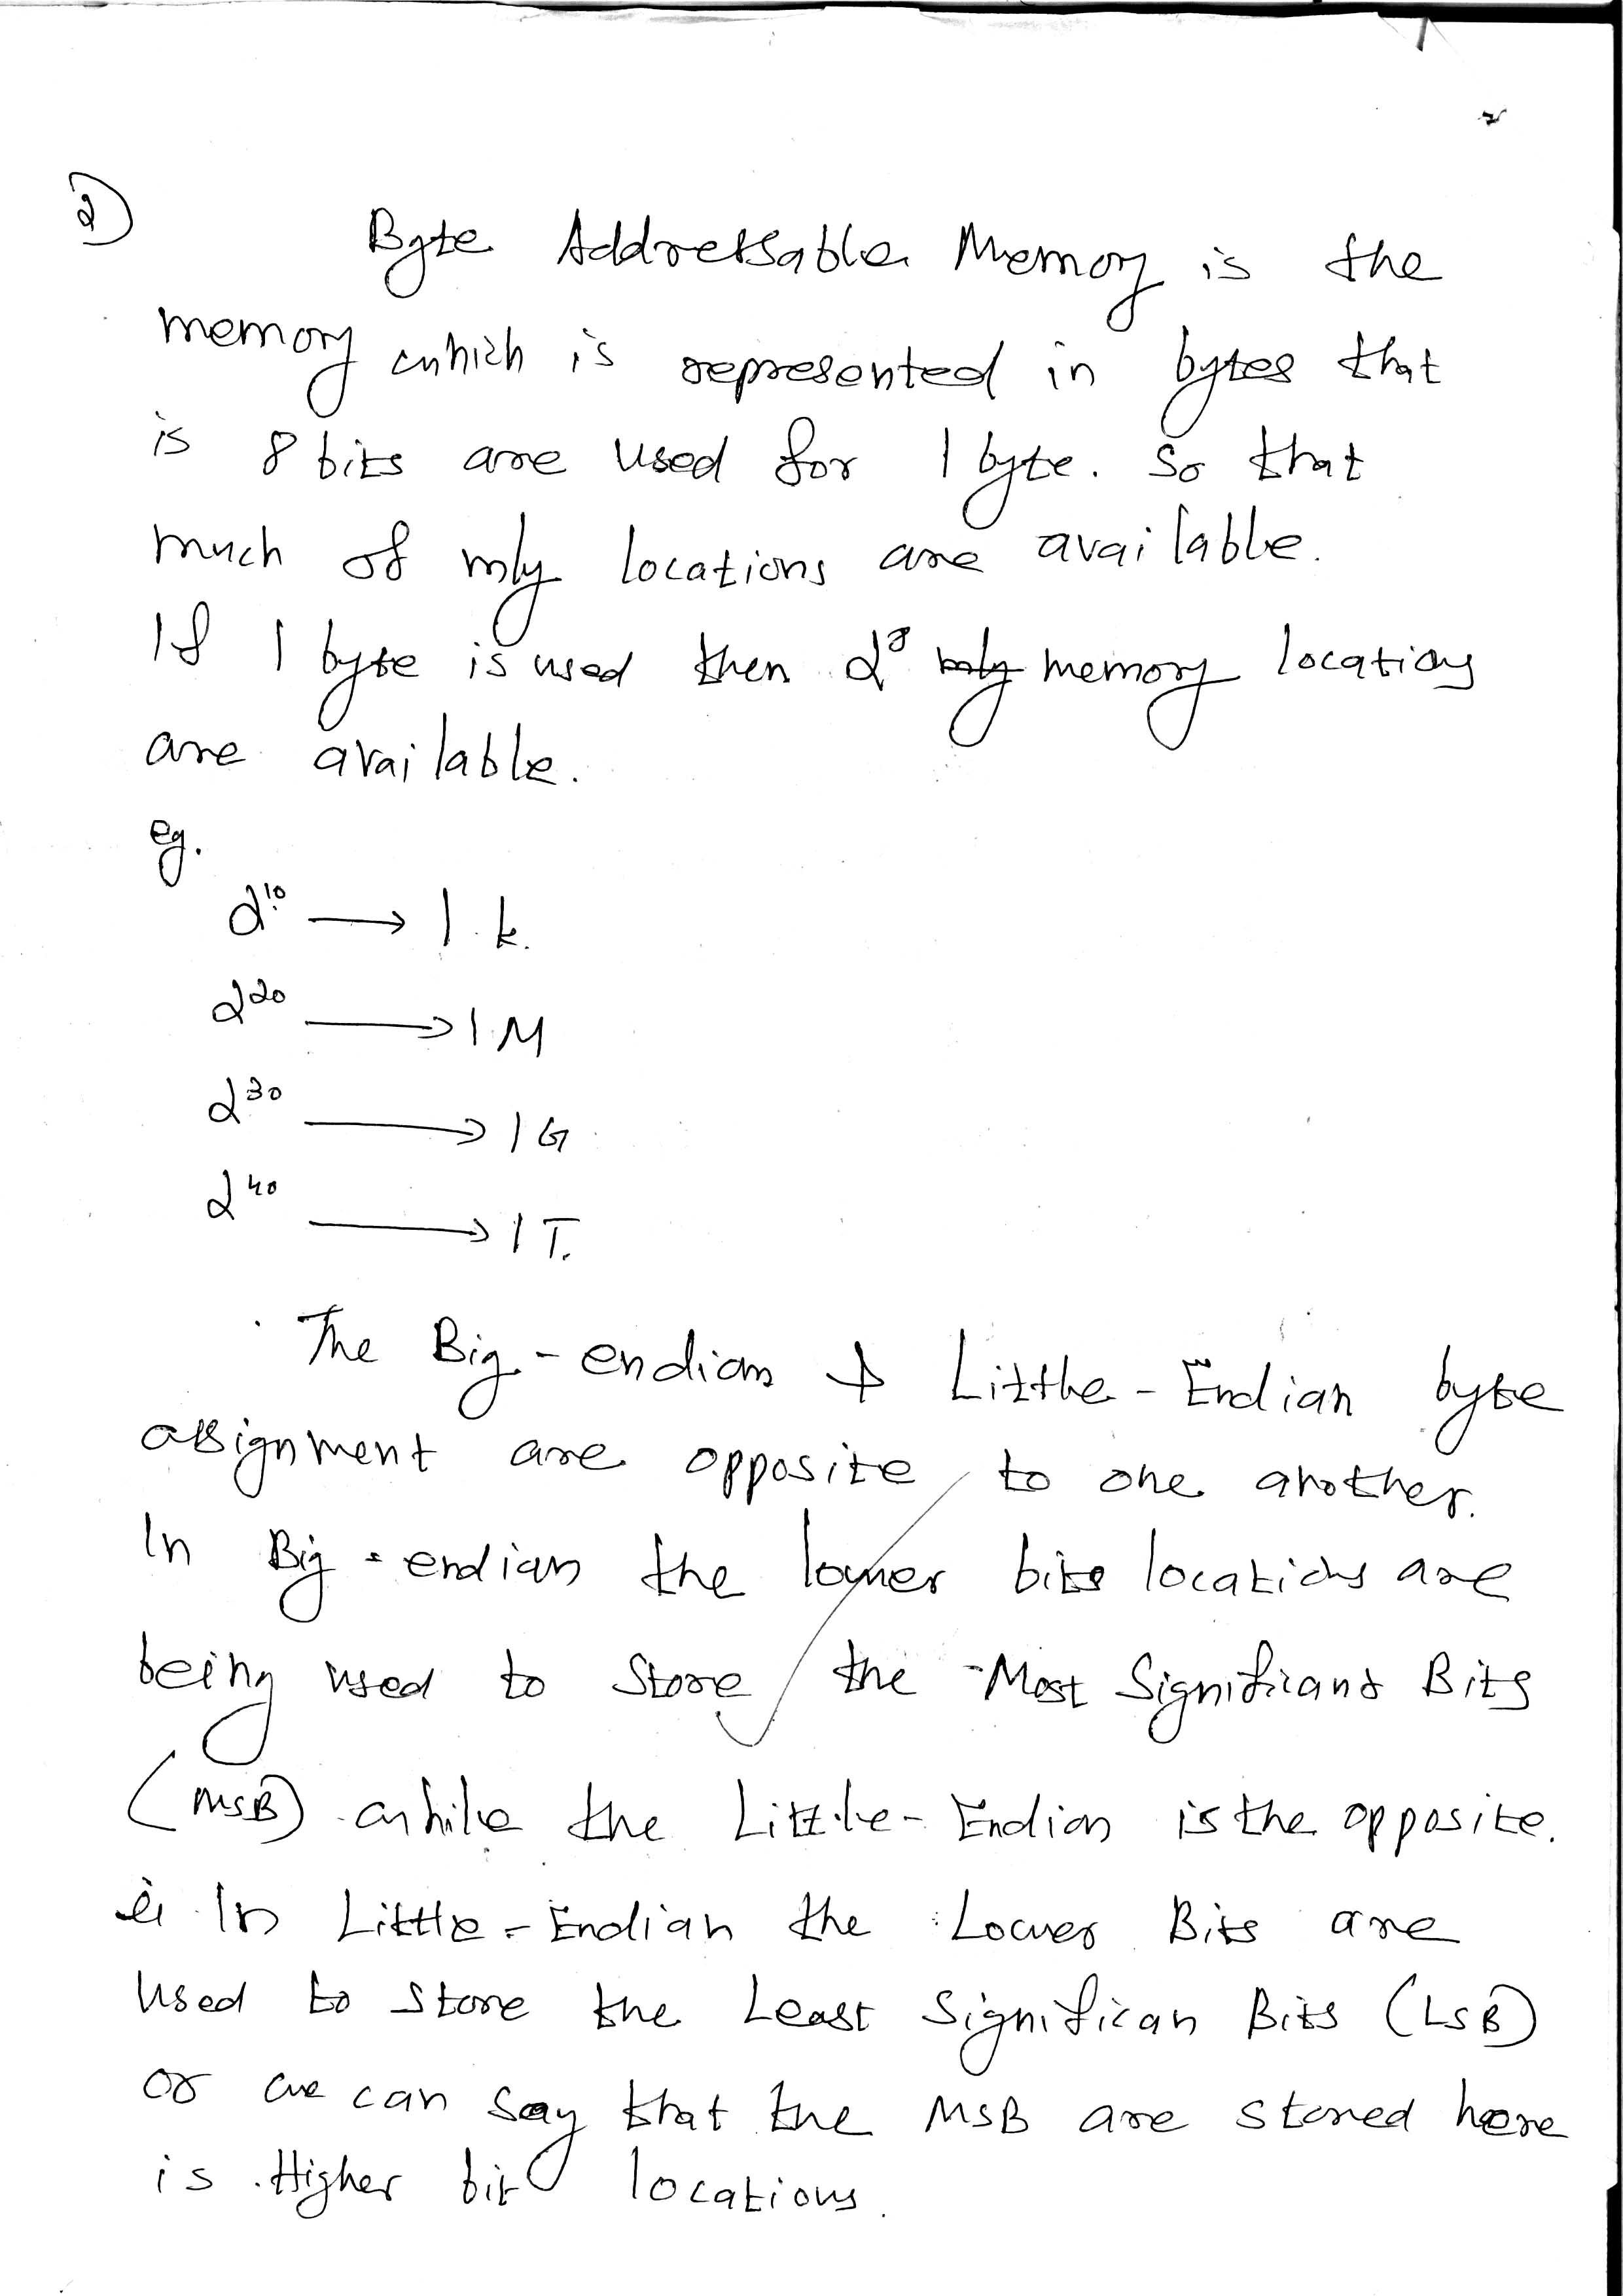 2)
Byte Addressable Memory is the
memory which is represented in bytes that
is 8 bits are used for 1 byte. So that
much of mly locations are available.
If 1 byte is used then 2⁸ mly memory locations
are available.
eg.
2¹⁰ → 1 k.
2²⁰ → 1 M
2³⁰ → 1 G
2⁴⁰ → 1 T.
The Big-endian & Little-Endian byte
assignment are opposite to one another.
In Big-endian the lower bits locations are
being used to store the Most Significant Bits
(MSB) while the Little-Endian is the opposite.
ie In Little-Endian the Lower Bits are
used to store the Least Significan Bits (LSB)
or we can say that the MSB are stored here
is Higher bit locations.